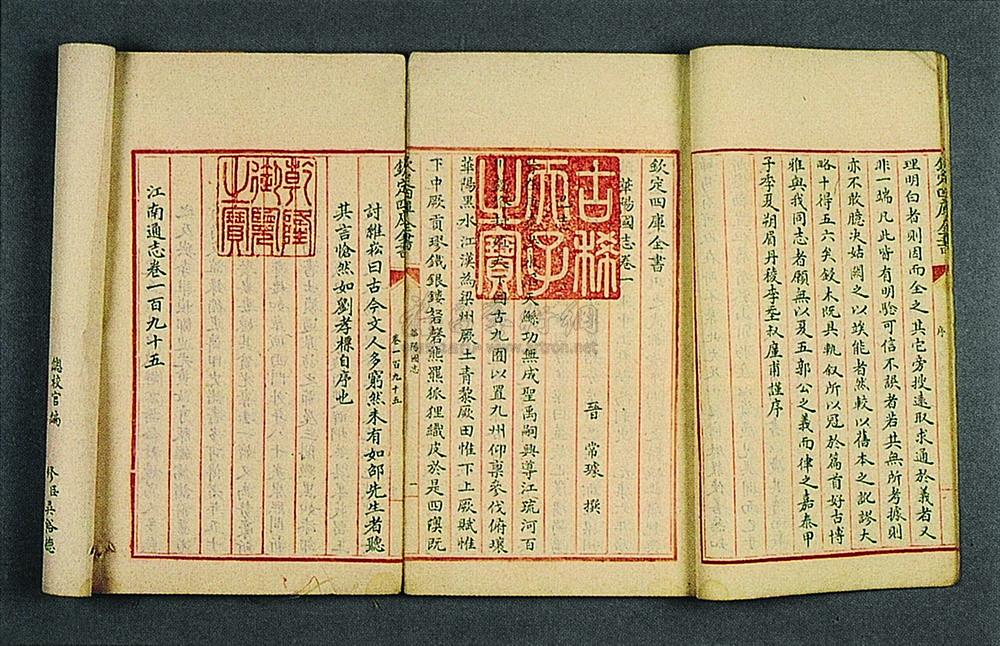 欽定四庫全書
序
理明白者則因而全之其它旁搜遠取求通於義者又
非一端凡此皆有明驗可信不誣者若其無所考據則
亦不敢臆決姑闕之以俟能者然較以舊本之訛謬大
略十得五六矣鋟木既具輒叙所以冠於篇首好古博
雅與我同志者願無以夏五郭公之義而律之嘉泰甲
子季夏朔眉丹稜李𡌴叔廑甫謹序
欽定四庫全書
華陽國志卷一
晉 常璩 撰
古稀天子之寶
天鯀功無成聖禹嗣興導江疏河百
因古九囿以置九州仰稟參伐俯壤
華陽黑水江漢為梁州厥土青黎厥田惟下上厥賦惟
下中厥貢璆鐵銀鏤砮磬熊羆狐狸織皮於是四隩既
華陽國志
一
欽定四庫全書
卷一百九十五
討維松曰古今文人多窮然未有如邵先生者聽
其言愴然如劉孝標自序也
乾隆御覽之寶
江南通志卷一百九十五
總校官編
修臣吳裕德